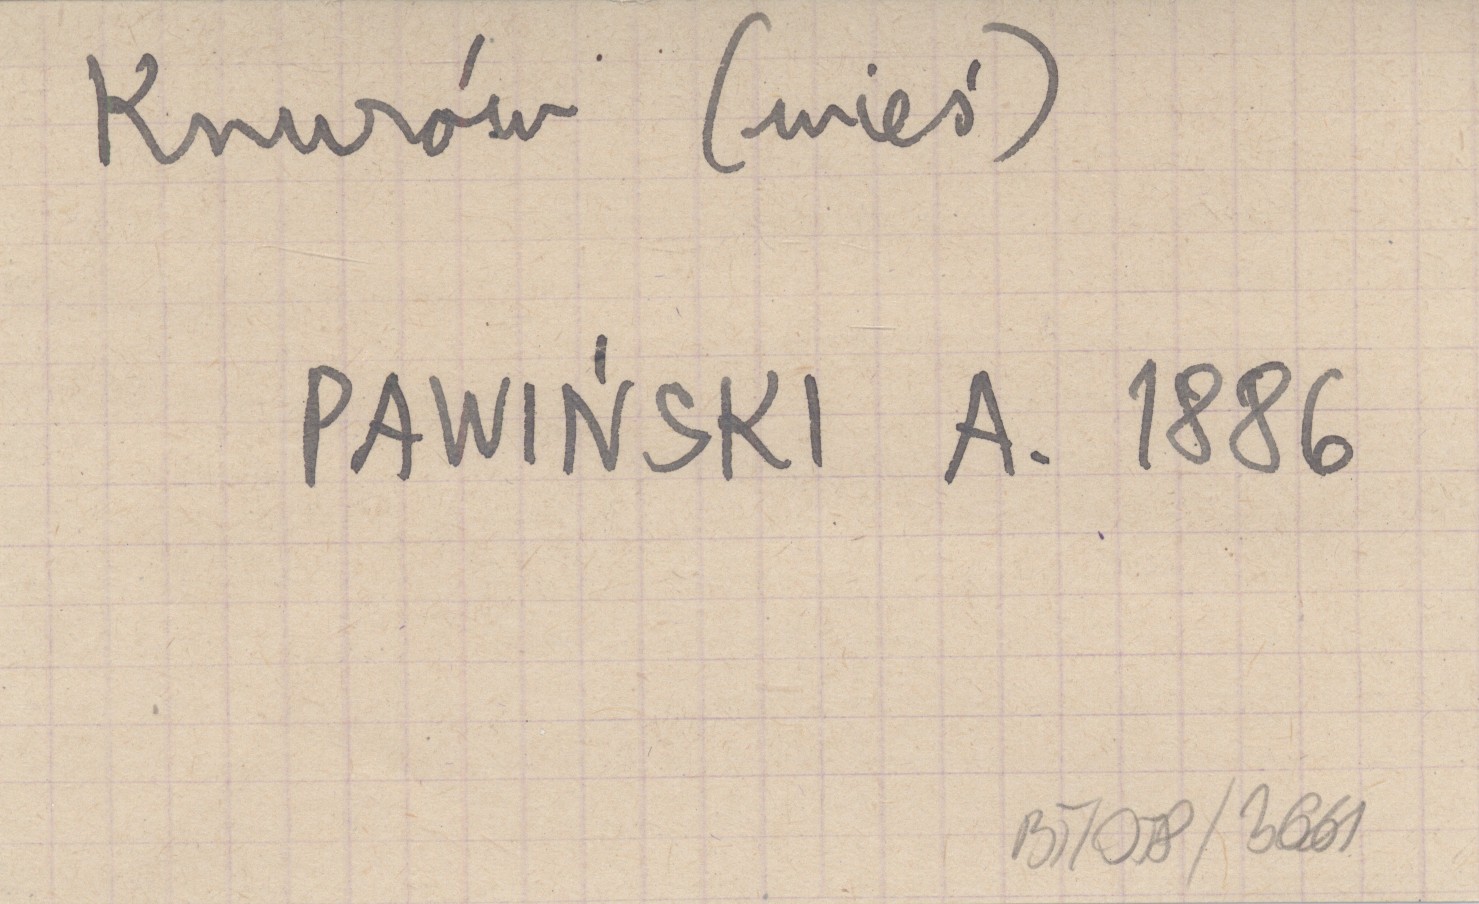 Knurów (wieś)
PAWIŃSKI A. 1886
BT/078/3661